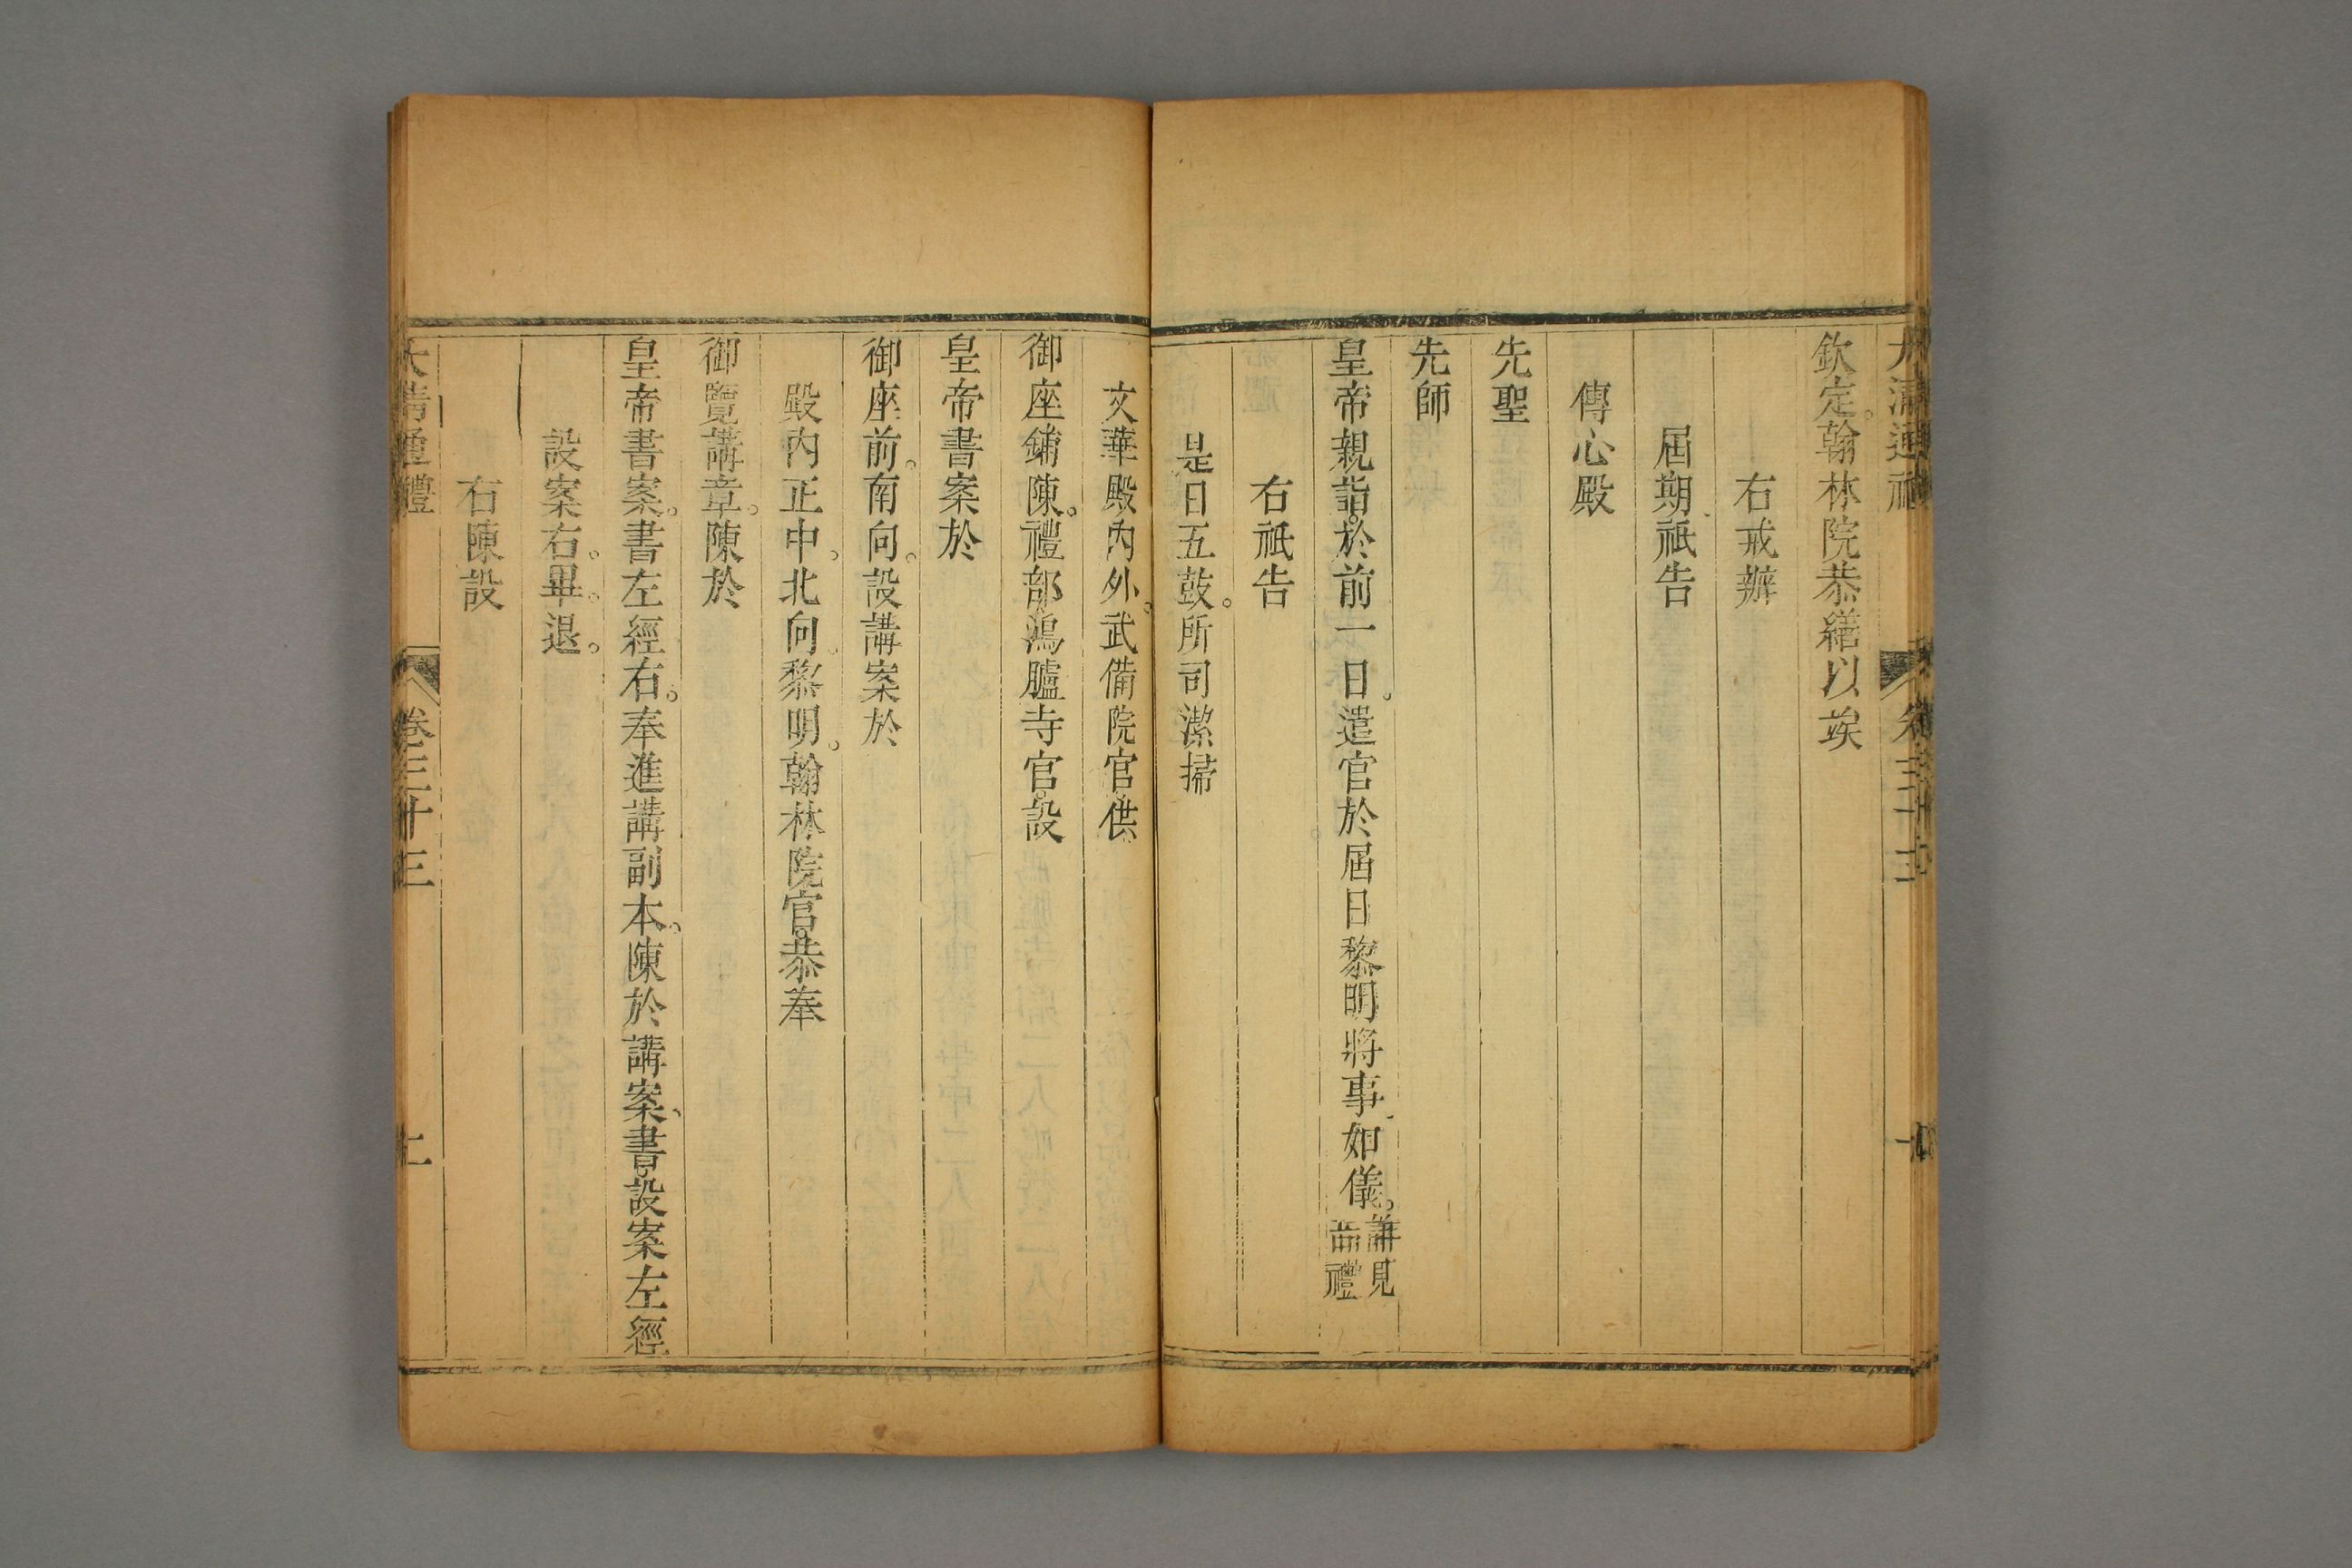 大清通禮 卷三十三
欽定。翰林院恭繕以竢
右戒辦
屆期祇告
傳心殿
先聖
先師
皇帝親詣。於前一日。遣官於屆日黎明將事。如儀。詳見吉禮
右祇告
是日五鼓。所司潔掃
文華殿內外。武備院官。供
御座鋪陳。禮部鴻臚寺官。設
皇帝書案於
御座前。南向。設講案於
殿內正中。北向。黎明。翰林院官。恭奉
御覽講章。陳於
皇帝書案。書左經右。奉進講副本。陳於講案、書。設案左經
設案右。畢。退。
右陳設
大清通禮 卷三十三 二